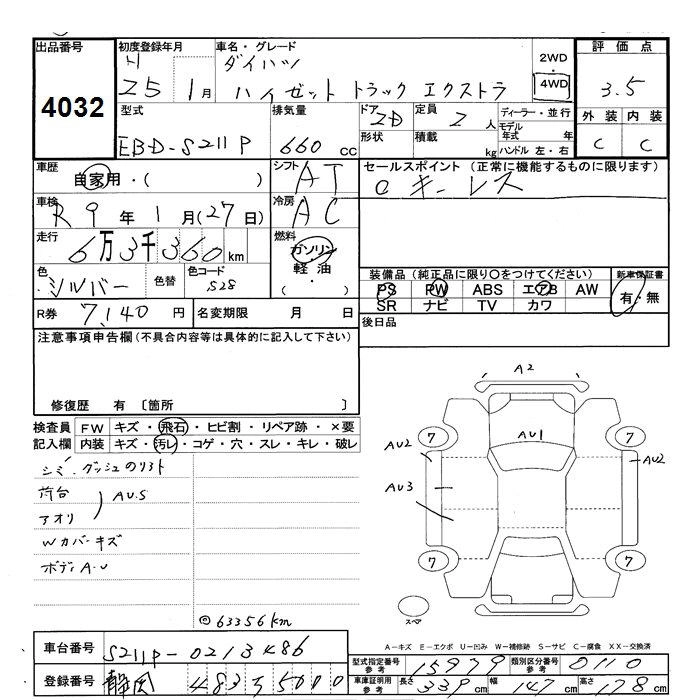 出品番号 初度登録年月 車名・グレード 2WD 評価点
4032 H 25 1月 ダイハツ 4WD 3.5
ハイゼット トラック エクストラ
型式 排気量 ドア 定員 ディーラー・並行 外装 内装
EBD-S211P 660 cc 2D 2人 モデル年式 年 C C
形状 積載 kg ハンドル 左・右
車歴 自家用・( ) シフト AT セールスポイント (正常に機能するものに限ります)
キーレス
車検 R9年1月(27日) 冷房 AC
走行 6万3千360km 燃料 ガソリン
軽油
( )
色 シルバー 色替 色コード S28
装備品 (純正品に限り○をつけてください) 新車保証書
PS PW ABS エアB AW 有・無
SR ナビ TV カワ
R券 7,140円 名変期限 月 日 後日品
注意事項申告欄 (不具合内容等は具体的に記入して下さい)
修復歴 有 〔箇所 〕
検査員 FW キズ・飛石・ヒビ割・リペア跡・×要
記入欄 内装 キズ・汚レ・コゲ・穴・スレ・キレ・破レ
シミ.
荷台
アオリ
AU.S
Wカバーキズ
ボディA-U
◎63356km
A2
7 AU1 7
AU2 AU2
AU3
7 7
スペア
A-キズ E-エクボ U-凹み W-補修跡 S-サビ C-腐食 XX-交換済
車台番号 S211P-0213486
型式指定番号 参考 15979 類別区分番号 参考 0110
登録番号 静岡 483
車庫証明用 参考 長さ 339cm 幅 147cm 高さ 178cm